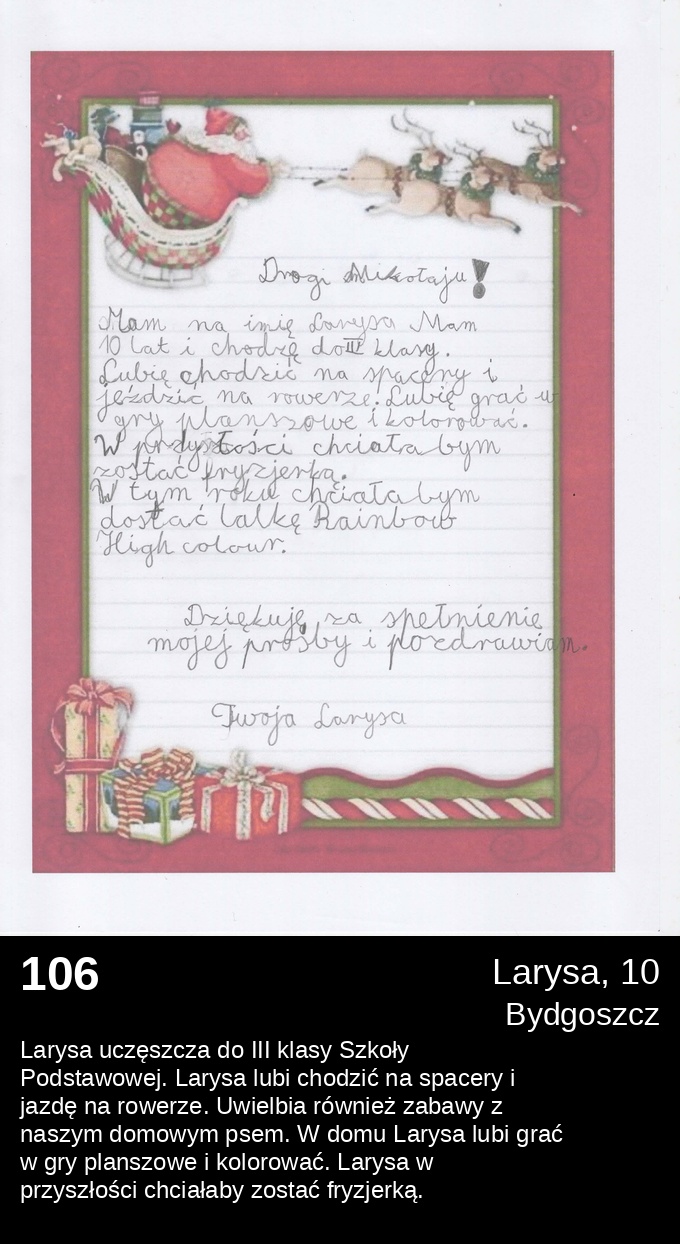 Drogi Mikołaju!
Mam na imię Larysa Mam
10 lat i chodzę do III klasy.
Lubię chodzić na spacery i
jeździć na rowerze. Lubię grać w
gry planszowe i kolorować.
W przyszłości chciała bym
zostać fryzjerką.
W tym roku chciała bym
dostać lalkę Rainbow
High colour.
Dziękuję za spełnienie
mojej prośby i pozdrawiam.
Twoja Larysa
106
Larysa, 10
Bydgoszcz
Larysa uczęszcza do III klasy Szkoły
Podstawowej. Larysa lubi chodzić na spacery i
jazdę na rowerze. Uwielbia również zabawy z
naszym domowym psem. W domu Larysa lubi grać
w gry planszowe i kolorować. Larysa w
przyszłości chciałaby zostać fryzjerką.